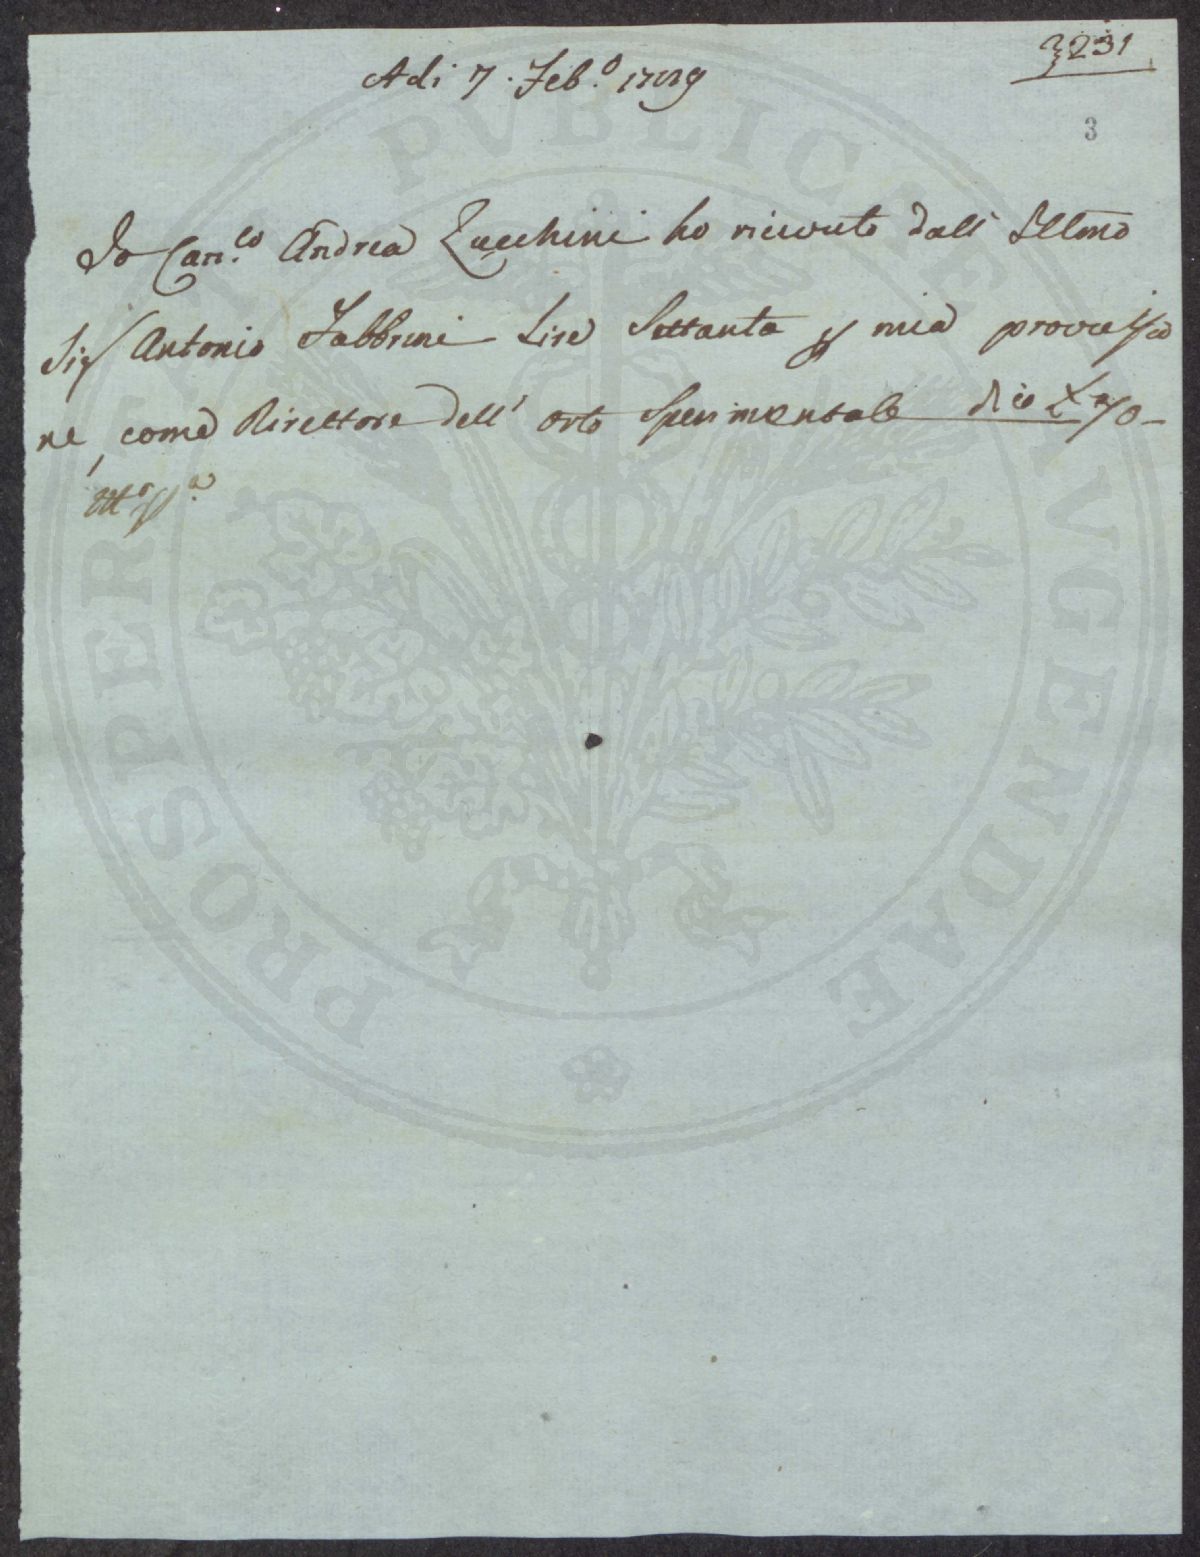 3231
Adi 7. Feb.º 1789
3
Io Can.co Andrea Zucchini ho ricevuto dall' Illmo
Sig Antonio Fabbrini Lire Settanta p mia provvisio
ne, come Direttore dell' orto Sperimentale dico £ 70 -
PROSPERITATI PVBLICAE AVGENDAE